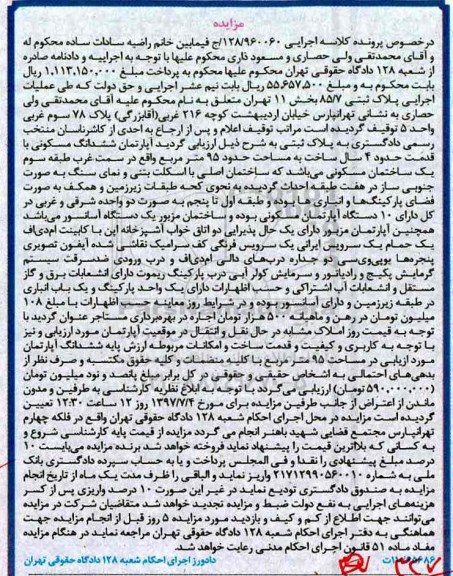 مزایده
درخصوص پرونده کلاسه اجرایی ۱۲۸/۹۶۰۰۶۰/ج فیمابین خانم راضیه سادات ساده محکوم له
و آقای محمدتقی ولی حصاری و مسعود ذاری محکوم علیها با توجه به اجراییه و دادنامه صادره
از شعبه ۱۲۸ دادگاه حقوقی تهران محکوم علیها محکوم به پرداخت مبلغ ۱،۱۱۳،۱۵۰،۰۰۰ ریال
بابت محکوم به و مبلغ ۵۵،۶۵۷،۵۰۰ ریال بابت نیم عشر اجرایی و حق دولت که طی عملیات
اجرایی پلاک ثبتی ۸۵/۷ بخش ۱۱ تهران متعلق به نام محکوم علیه آقای محمدتقی ولی
حصاری به نشانی تهرانپارس خیابان اردیبهشت کوچه ۲۱۶ غربی(آقابزرگی) پلاک ۷۸ سوم غربی
واحد ۵ توقیف گردیده است مراتب توقیف اعلام و پس از ارجاع به احدی از کارشناسان منتخب
رسمی دادگستری به پلاک ثبتی به شرح ذیل ارزیابی گردید آپارتمان ششدانگ مسکونی با
قدمت حدود ۴ سال ساخت به مساحت حدود ۹۵ متر مربع واقع در سمت غرب طبقه سوم
یک ساختمان مسکونی می‌باشد که ساختمان اصلی با اسکلت بتنی و نمای سنگ به صورت
جنوبی ساز در هفت طبقه احداث گردیده بنحوی که طبقات زیرزمین و همکف به صورت
فضای پارکینگ‌ها و انباری ها بوده و طبقه اول تا پنجم به صورت دو واحده شرقی و غربی در
کل دارای ۱۰ دستگاه آپارتمان مسکونی بوده و ساختمان مزبور یک دستگاه آسانسور می‌باشد
همچنین آپارتمان مزبور دارای یک حال پذیرایی دو اتاق خواب آشپزخانه اپن با کابینت ام‌دی‌اف
یک حمام یک سرویس ایرانی یک سرویس فرنگی کف سرامیک نقاشی شده آیفون تصویری
پنجره‌ها یوپی‌وی‌سی دو جداره درب‌های دالی ام‌دی‌اف و درب ورودی ضدسرقت سیستم
گرمایش پکیج و رادیاتور و سرمایش کولر آبی درب پارکینگ ریموت دارای انشعابات برق و گاز
مستقل و انشعابات آب اشتراکی و حسب اظهارات دارای یک واحد پارکینگ و یک باب انباری
در طبقه زیرزمین و دارای آسانسور بوده و در شرایط روز معاینه حسب اظهارات با مبلغ ۱۰۸
میلیون تومان در رهن و ماهیانه ۵۰۰ هزار تومان اجاره در بهره‌برداری مستاجر عنوان گردید با
توجه به قیمت روز املاک مشابه در حال نقل و انتقال در موقعیت آپارتمان مورد ارزیابی و نیز
با توجه به کاربری و کیفیت و قدمت ساخت و امکانات مربوطه ارزش پایه ششدانگ آپارتمان
مورد ارزیابی در مساحت ۹۵ متر مربع با کلیه متضمنات و کلیه حقوق مکتسبه و صرف نظر از
بدهی‌های احتمالی به اشخاص حقیقی و حقوقی در کل برابر مبلغ پانصد و نود میلیون تومان
(۵۹۰،۰۰۰،۰۰۰ تومان) ارزیابی می‌گردد با توجه به ابلاغ نظریه کارشناسی به طرفین و مدون
ماندن از اعتراض از جانب طرفین مزایده برای مورخ ۱۳۹۷/۷/۴ روز ۱۲ ساعت ۱۲:۳۰ تعیین
گردیده است مزایده در محل اجرای احکام شعبه ۱۲۸ دادگاه حقوقی تهران واقع در فلکه چهارم
تهرانپارس مجتمع قضایی شهید باهنر انجام می گردد مزایده از قیمت پایه کارشناسی شروع و
به کسانی که بالاترین قیمت را پیشنهاد نماید فروخته خواهد شد برنده مزایده می‌بایست ۱۰
درصد مبلغ پیشنهادی را نقدا و فی المجلس پرداخت و یا به حساب سپرده دادگستری بانک
ملی به شماره ۲۱۷۱۲۹۹۰۵۶۰۰۱۰ واریز نماید و الباقی را ظرف مدت یک ماه از تاریخ انجام
مزایده به صندوق دادگستری تودیع نماید در غیر این صورت ۱۰ درصد واریزی پس از کسر
هزینه‌های اجرایی به نفع دولت ضبط و مزایده تجدید خواهد شد متقاضیان شرکت در مزایده
می‌توانند جهت اطلاع از کم و کیف و بازدید مورد مزایده ۵ روز قبل از انجام مزایده جهت
هماهنگی به دفتر اجرای احکام شعبه ۱۲۸ دادگاه حقوقی تهران مراجعه نماید در هنگام مزایده
مفاد ماده ۵۱ قانون اجرای احکام مدنی رعایت خواهد شد.
دادورز اجرای احکام شعبه ۱۲۸ دادگاه حقوقی تهران